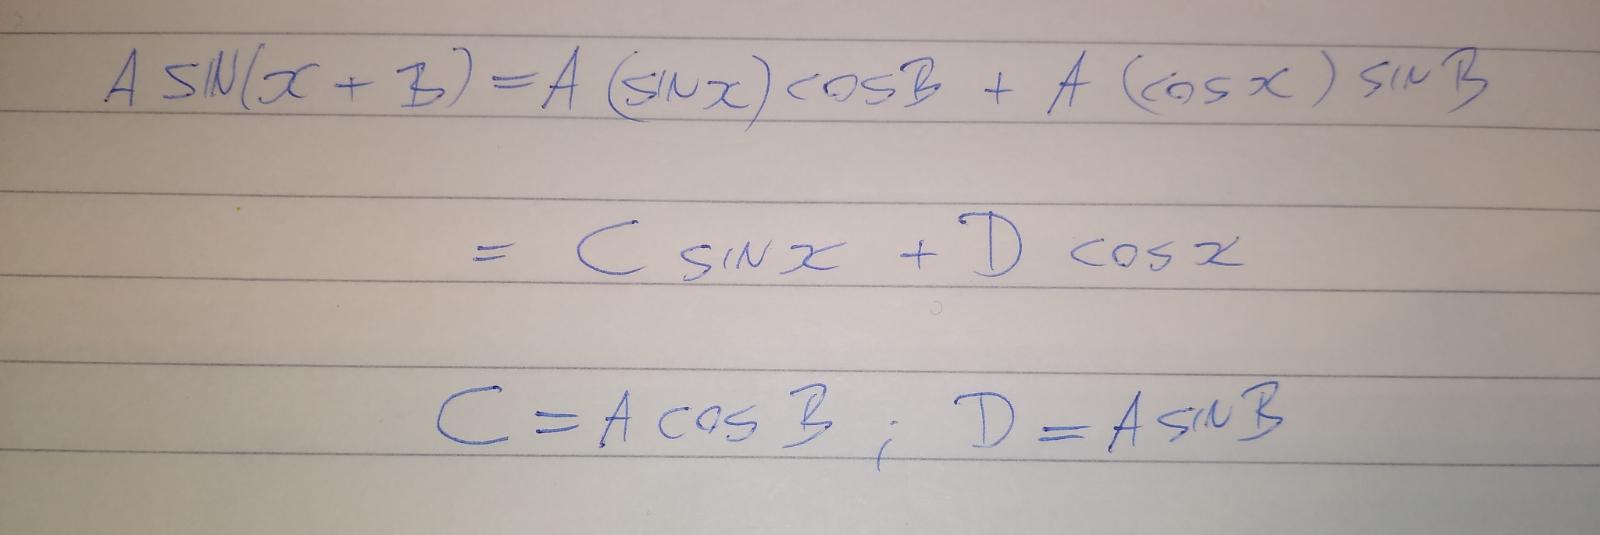 A SIN(x + B) = A (SINx) COSB + A (COSx) SINB
= C SINx + D COSx
C = A COS B ; D = A SINB